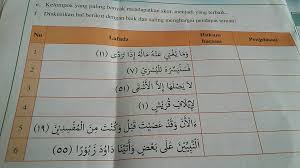 c. Kelompok yang paling banyak mendapatkan skor, menjadi yang terbaik.
f. Diskusikan hal berikut dengan baik dan saling menghargai pendapat teman!
No Lafadz Hukum bacaan Penjelasan
1 وَمَا يُغْنِي عَنْهُ مَالُهُ إِذَا تَرَدَّى (١١)
2 فَسَنُيَسِّرُهُ لِلْيُسْرَى (٧)
3 لَا يَصْلَاهَا إِلَّا الْأَشْقَى (١٥)
4 لِإِيلَافِ قُرَيْشٍ (١)
5 ءَالْآنَ وَقَدْ عَصَيْتَ قَبْلُ وَكُنْتَ مِنَ الْمُفْسِدِينَ (٩١)
6 النَّبِيِّينَ عَلَى بَعْضٍ وَآتَيْنَا دَاوُدَ زَبُورًا (٥٥)